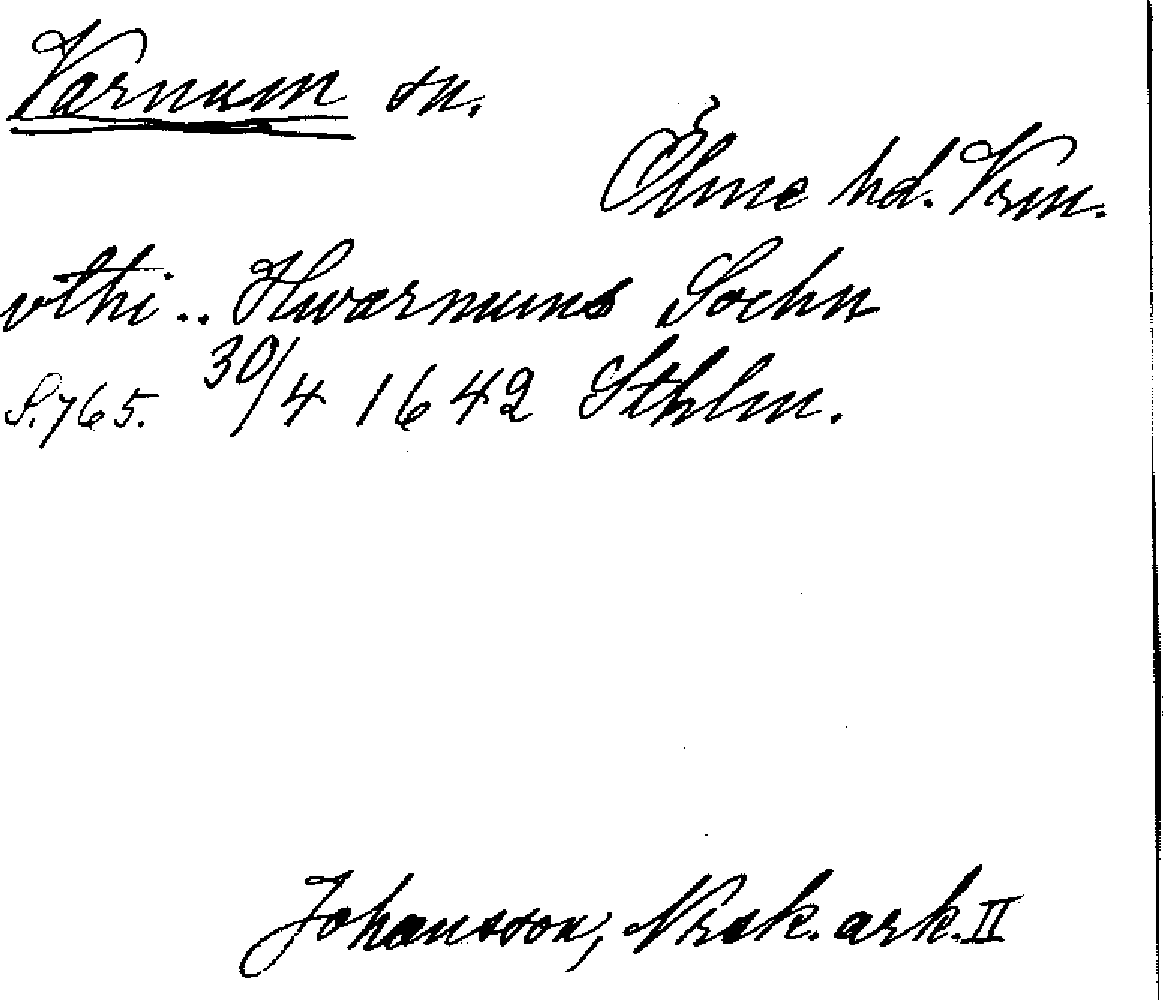 Varnum sn.
Ölme hd. Vrm.
vthi .. Hwarnums Sochn
S. 765. 30/4 1642 Sthlm.
Johansson, Nrsk. ark. II